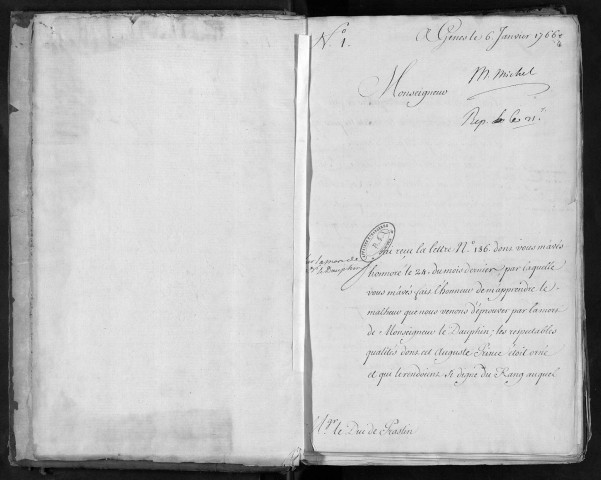 N.º 1.
A Genes le 6. Janvier 1766
M Michel
Monseigneur
Rep. le 21.
J'ai reçu la lettre N.º 186. dont vous m'avés
honnoré le 24. du mois dernier par laquelle
vous m'avés fait l'honneur de m'apprendre le
malheur que nous venons d'éprouver par la mort
de Monseigneur le Dauphin; les respectables
qualités dont cet Auguste Prince étoit orné
et qui le rendoient si digne du Rang auquel
sur la mort de
le Dauphin
le Duc de Praslin